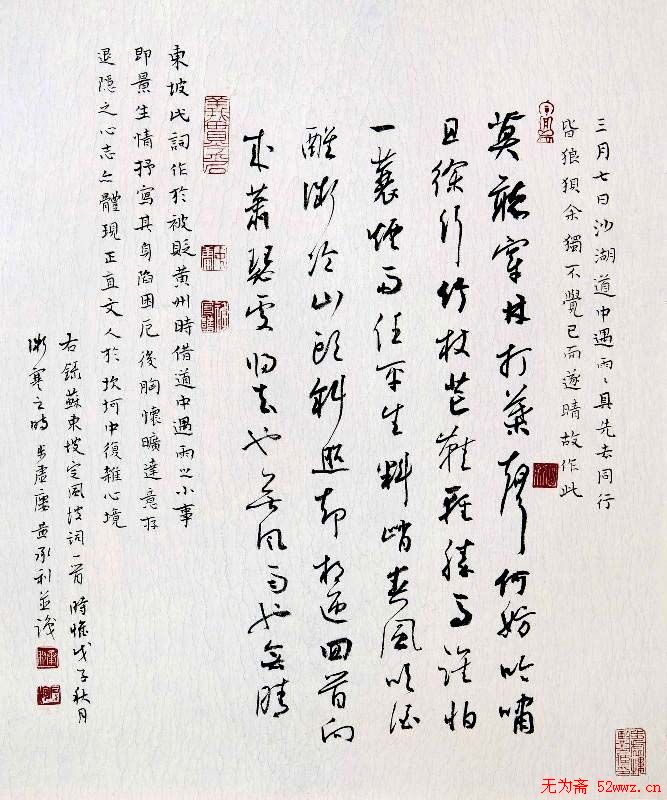 三月七日沙湖道中遇雨〻具先去同行
皆狼狽余獨不覺已而遂晴故作此
莫聽穿林打葉聲何妨吟嘯
且徐行竹杖芒鞋輕勝馬誰怕
一蓑煙雨任平生料峭春風吹酒
醒微冷山頭斜照却相迎回首向
來蕭瑟處归去也無風雨也無晴
東坡此詞作於被貶黃州時借道中遇雨之小事
即景生情抒寫其身陷困厄後胸懷曠達意存
退隱之心志亦體現正直文人於坎坷中復雜心境
右錄蘇東坡定風波詞一首 時惟戊子秋月
漸寒之時 黃承利並識
无为斋 52wwz.cn